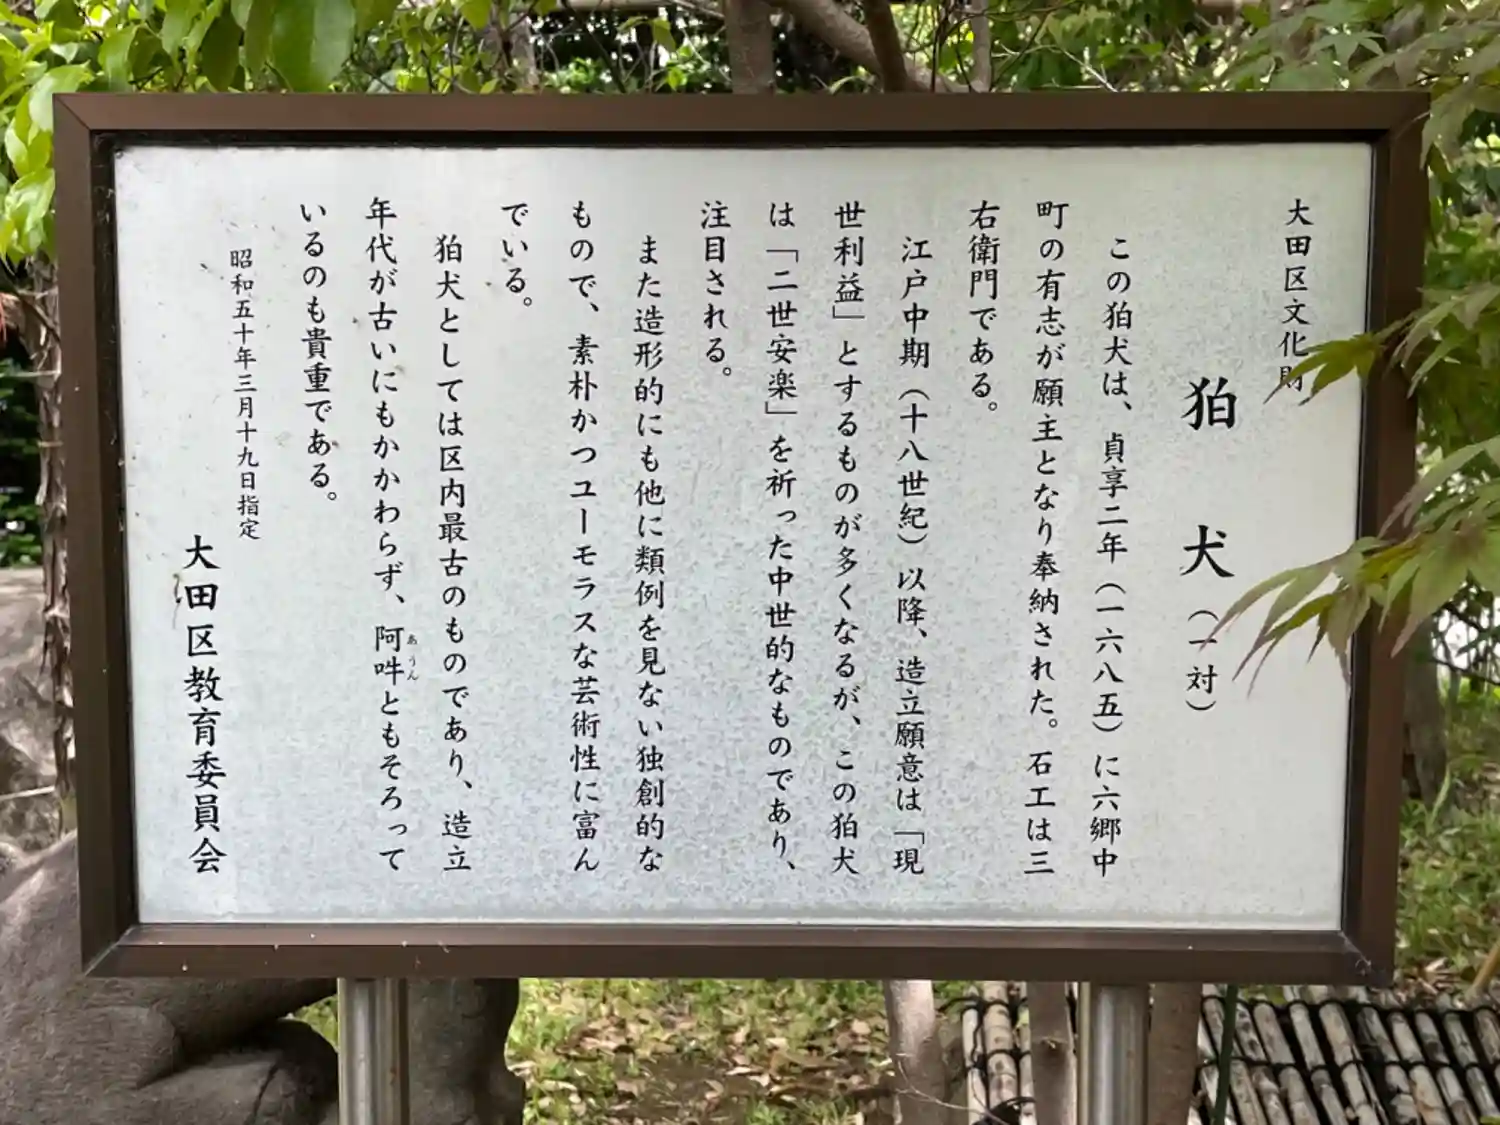 大田区文化財
狛犬（一対）
この狛犬は、貞享二年（一六八五）に六郷中
町の有志が願主となり奉納された。石工は三
右衛門である。
江戸中期（十八世紀）以降、造立願意は「現
世利益」とするものが多くなるが、この狛犬
は「二世安楽」を祈った中世的なものであり、
注目される。
また造形的にも他に類例を見ない独創的な
もので、素朴かつユーモラスな芸術性に富ん
でいる。
狛犬としては区内最古のものであり、造立
年代が古いにもかかわらず、阿吽ともそろって
あうん
いるのも貴重である。
昭和五十年三月十九日指定
大田区教育委員会